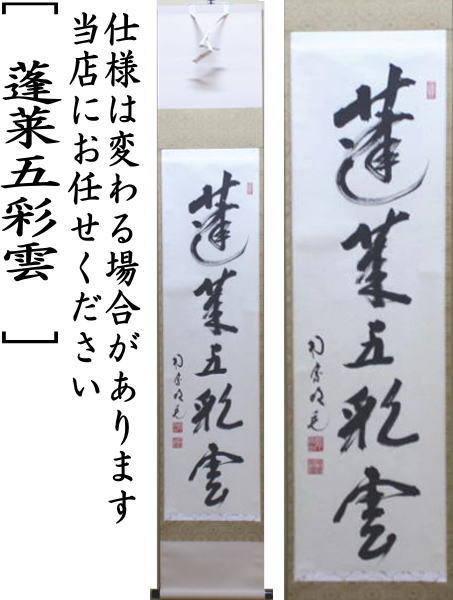 仕様は変わる場合があります
当店にお任せください
[蓬莱五彩雲]
蓬莱五彩雲
蓬莱五彩雲